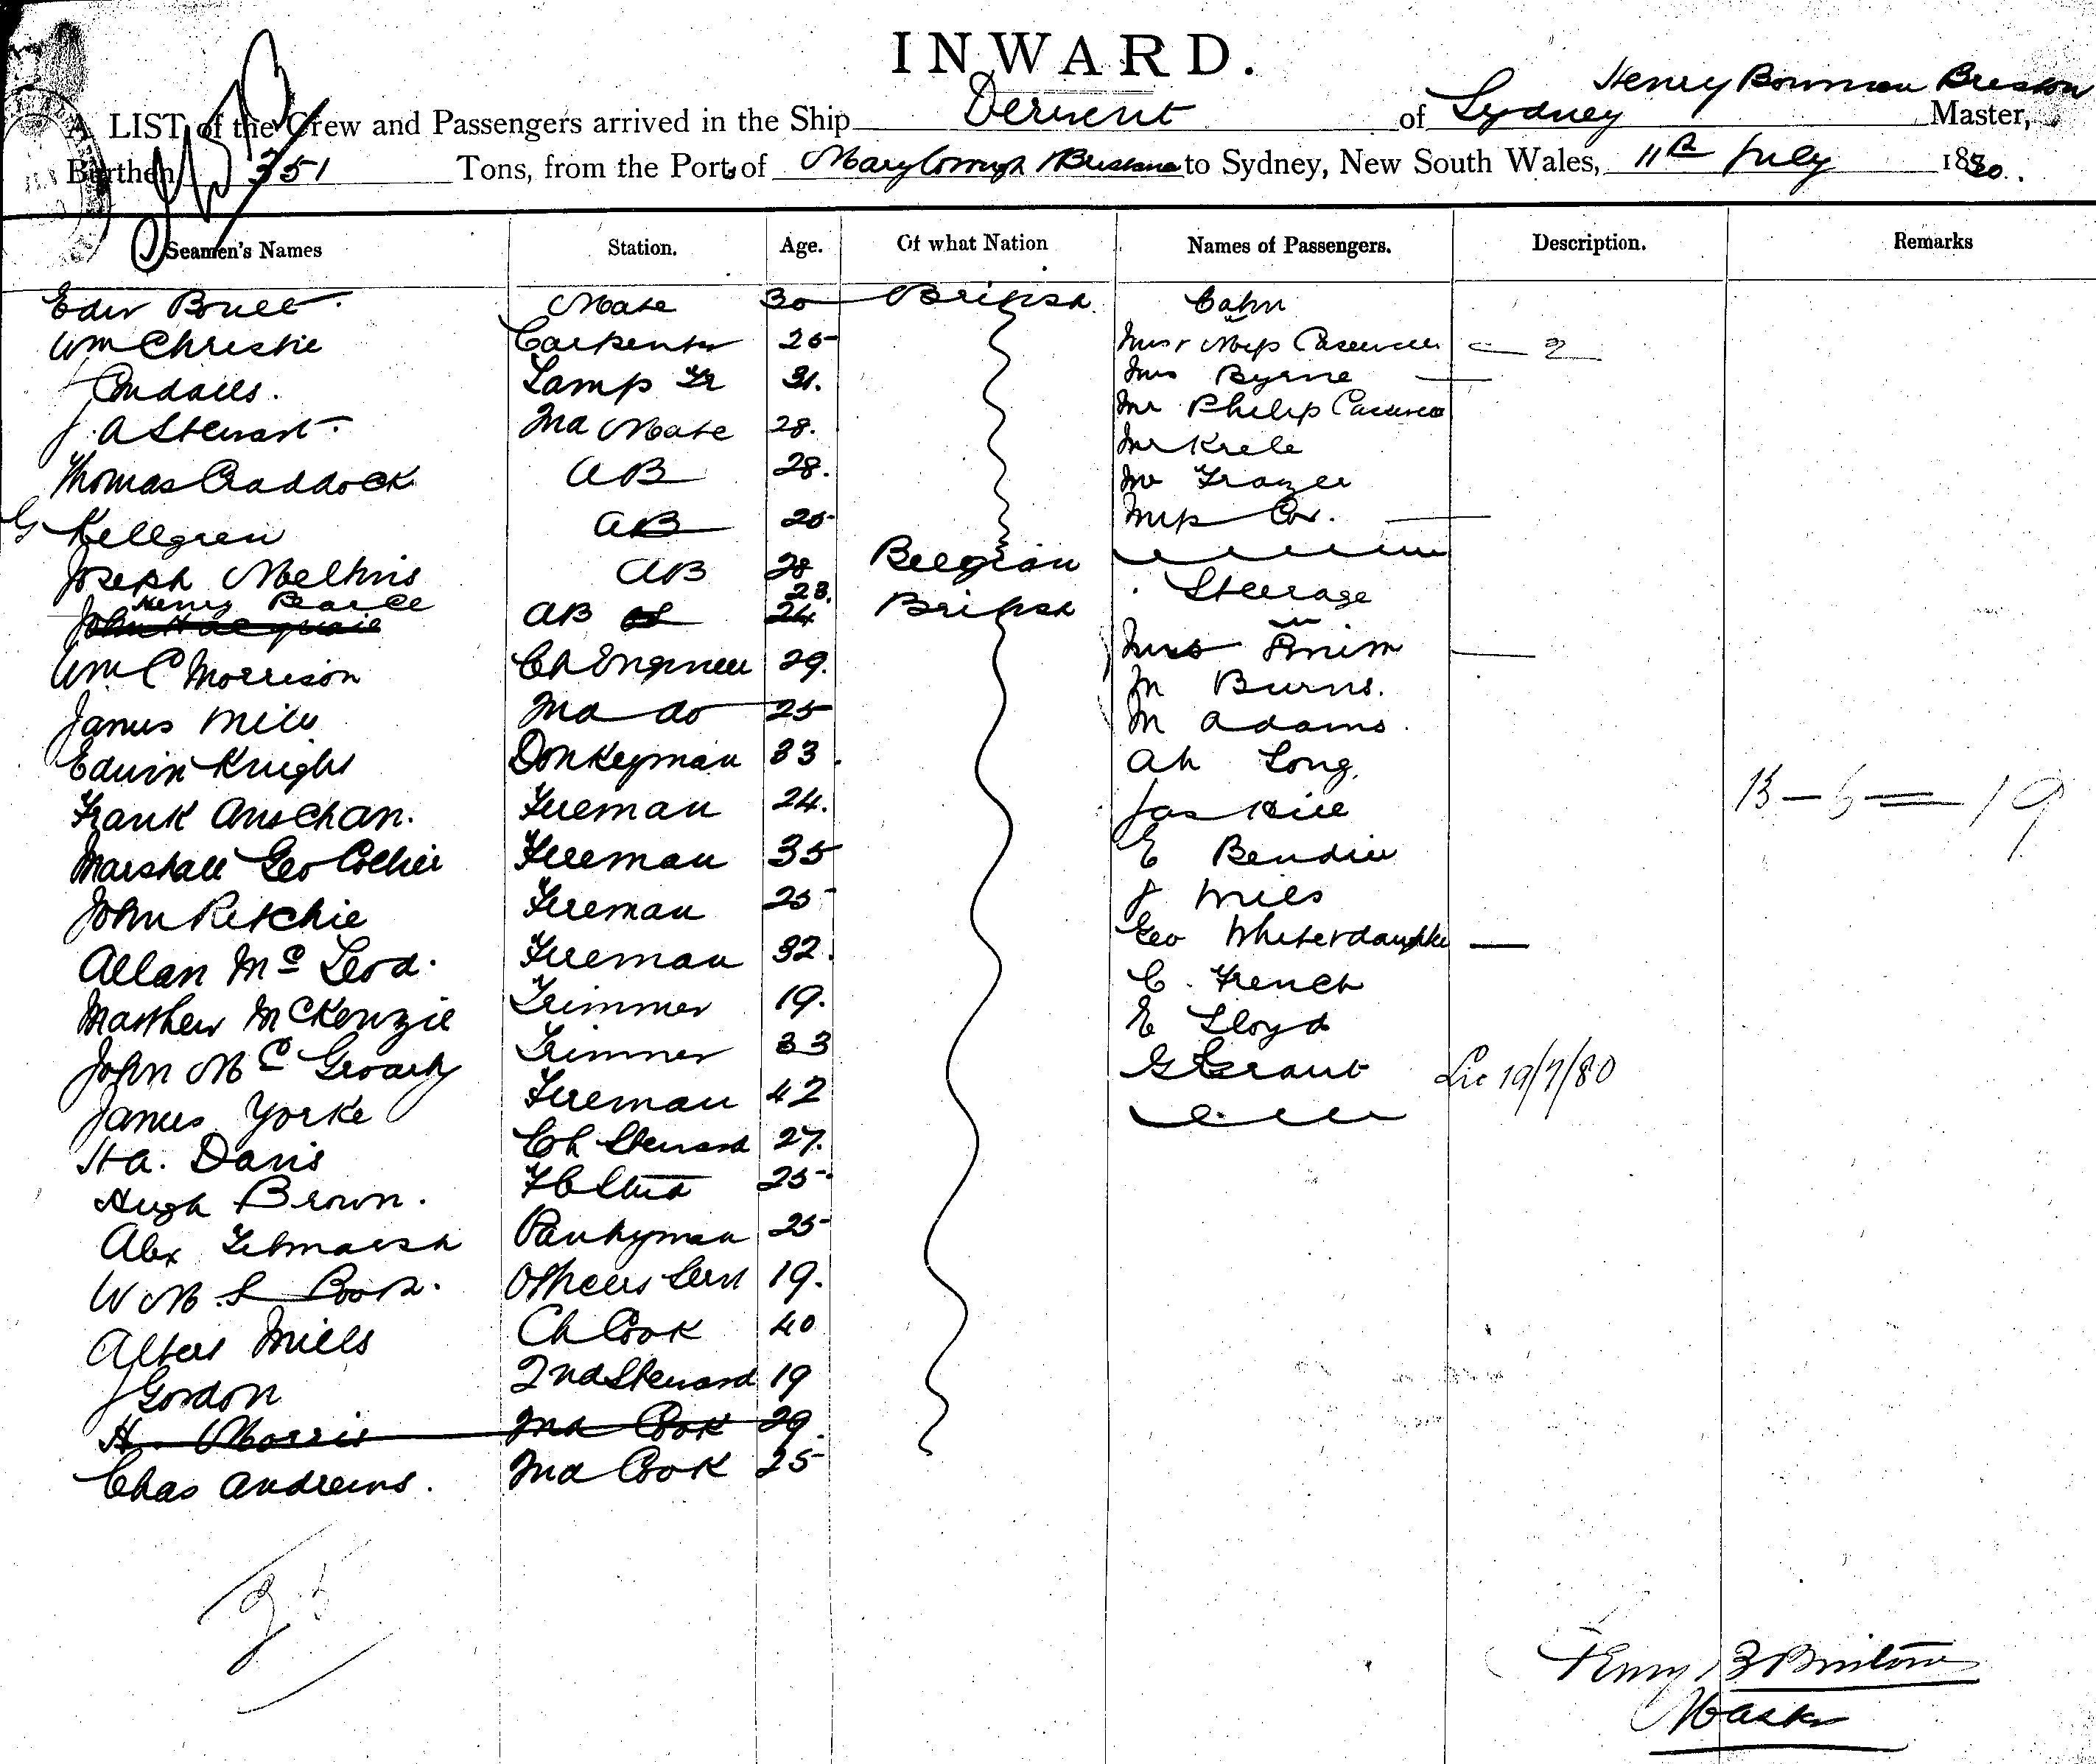 INWARD.
Henry Bowman
A LIST of the Crew and Passengers arrived in the Ship Derwent of Sydney Master,
Burthen 351 Tons, from the Port of Maryborough / Brisbane to Sydney, New South Wales, 11th July 1880.
Seamen's Names Station. Age. Of what Nation Names of Passengers. Description. Remarks
Mate 30 British Cabin
Wm Christie Carpenter 25 Mr & Miss 2
Lamp Tr 31. Mrs Byrne
J. A Stewart 2nd Mate 28. Mr Philip
Thomas Craddock AB 28. Mr
G Kellgren AB 25 Mr Frazer
Joseph AB 28 Belgian Miss Cox.
Henry Pearce 23. Steerage
John AB 24 British
Wm C Morrison Ch Engineer 29. Mrs
James 2nd do 25 M Burns.
Edwin Knight Donkeyman 33 M Adams.
Frank Fireman 24. Ah Long.
Marshall Geo Collier Fireman 35 Jas
John Ritchie Fireman 25 E
Allan Mc Leod. Fireman 32. J Miles
Matthew McKenzie Trimmer 19. Geo White & daughter
John Mc Trimmer 33 C. French
James Yorke Fireman 42 E Lloyd
H A. Davis Ch Steward 27. G Grant 19/7/80
Hugh Brown. 25
Alex Pantryman 25
W M. S Officers Servt 19.
Albert Mills Ch Cook 40
J Gordon 2nd Steward 19
H. Morris 2nd Cook 29
Chas Andrews. 2nd Cook 25
13 - 6 = 19
25
Henry B
Master